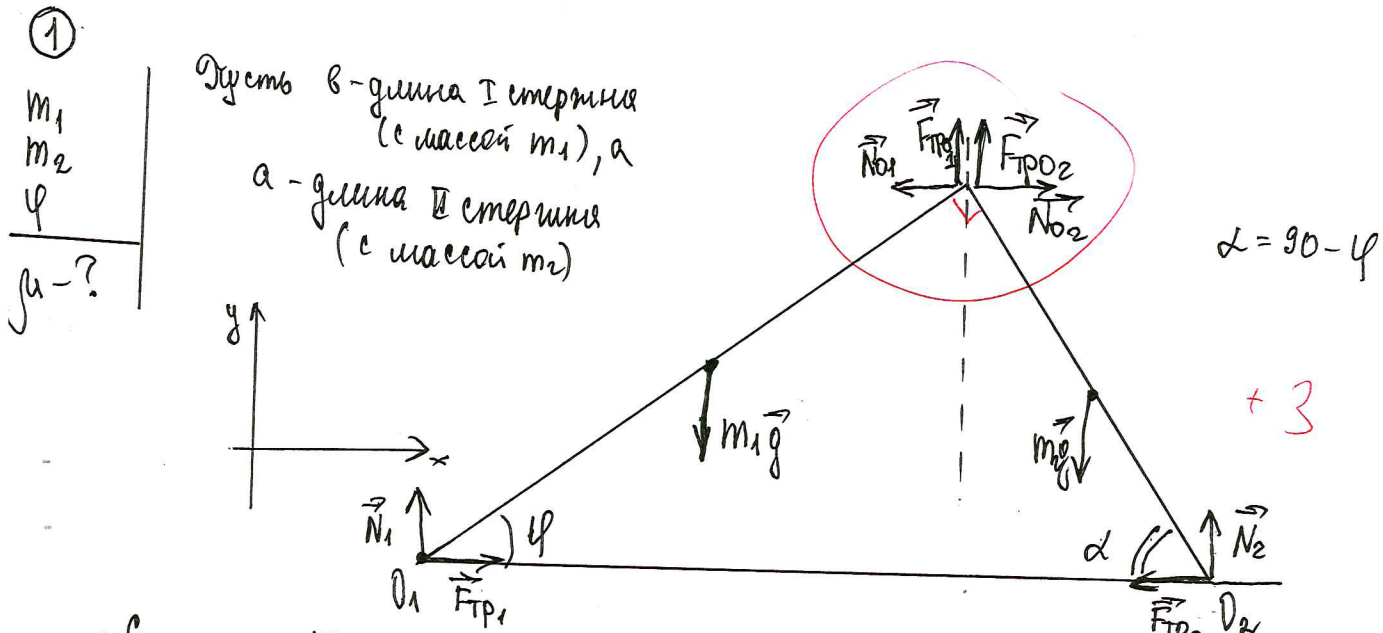 1
m₁
m₂
φ
μ - ?
Пусть в - длина I стержня
(с массой m₁), а
a - длина II стержня
(с массой m₂)
F⃗тро₁
F⃗тро₂
N⃗о₁
N⃗о₂
α = 90 - φ
+ 3
y
x
m₁g⃗
m₂g⃗
N⃗₁
φ
O₁
F⃗тр₁
α
N⃗₂
O₂